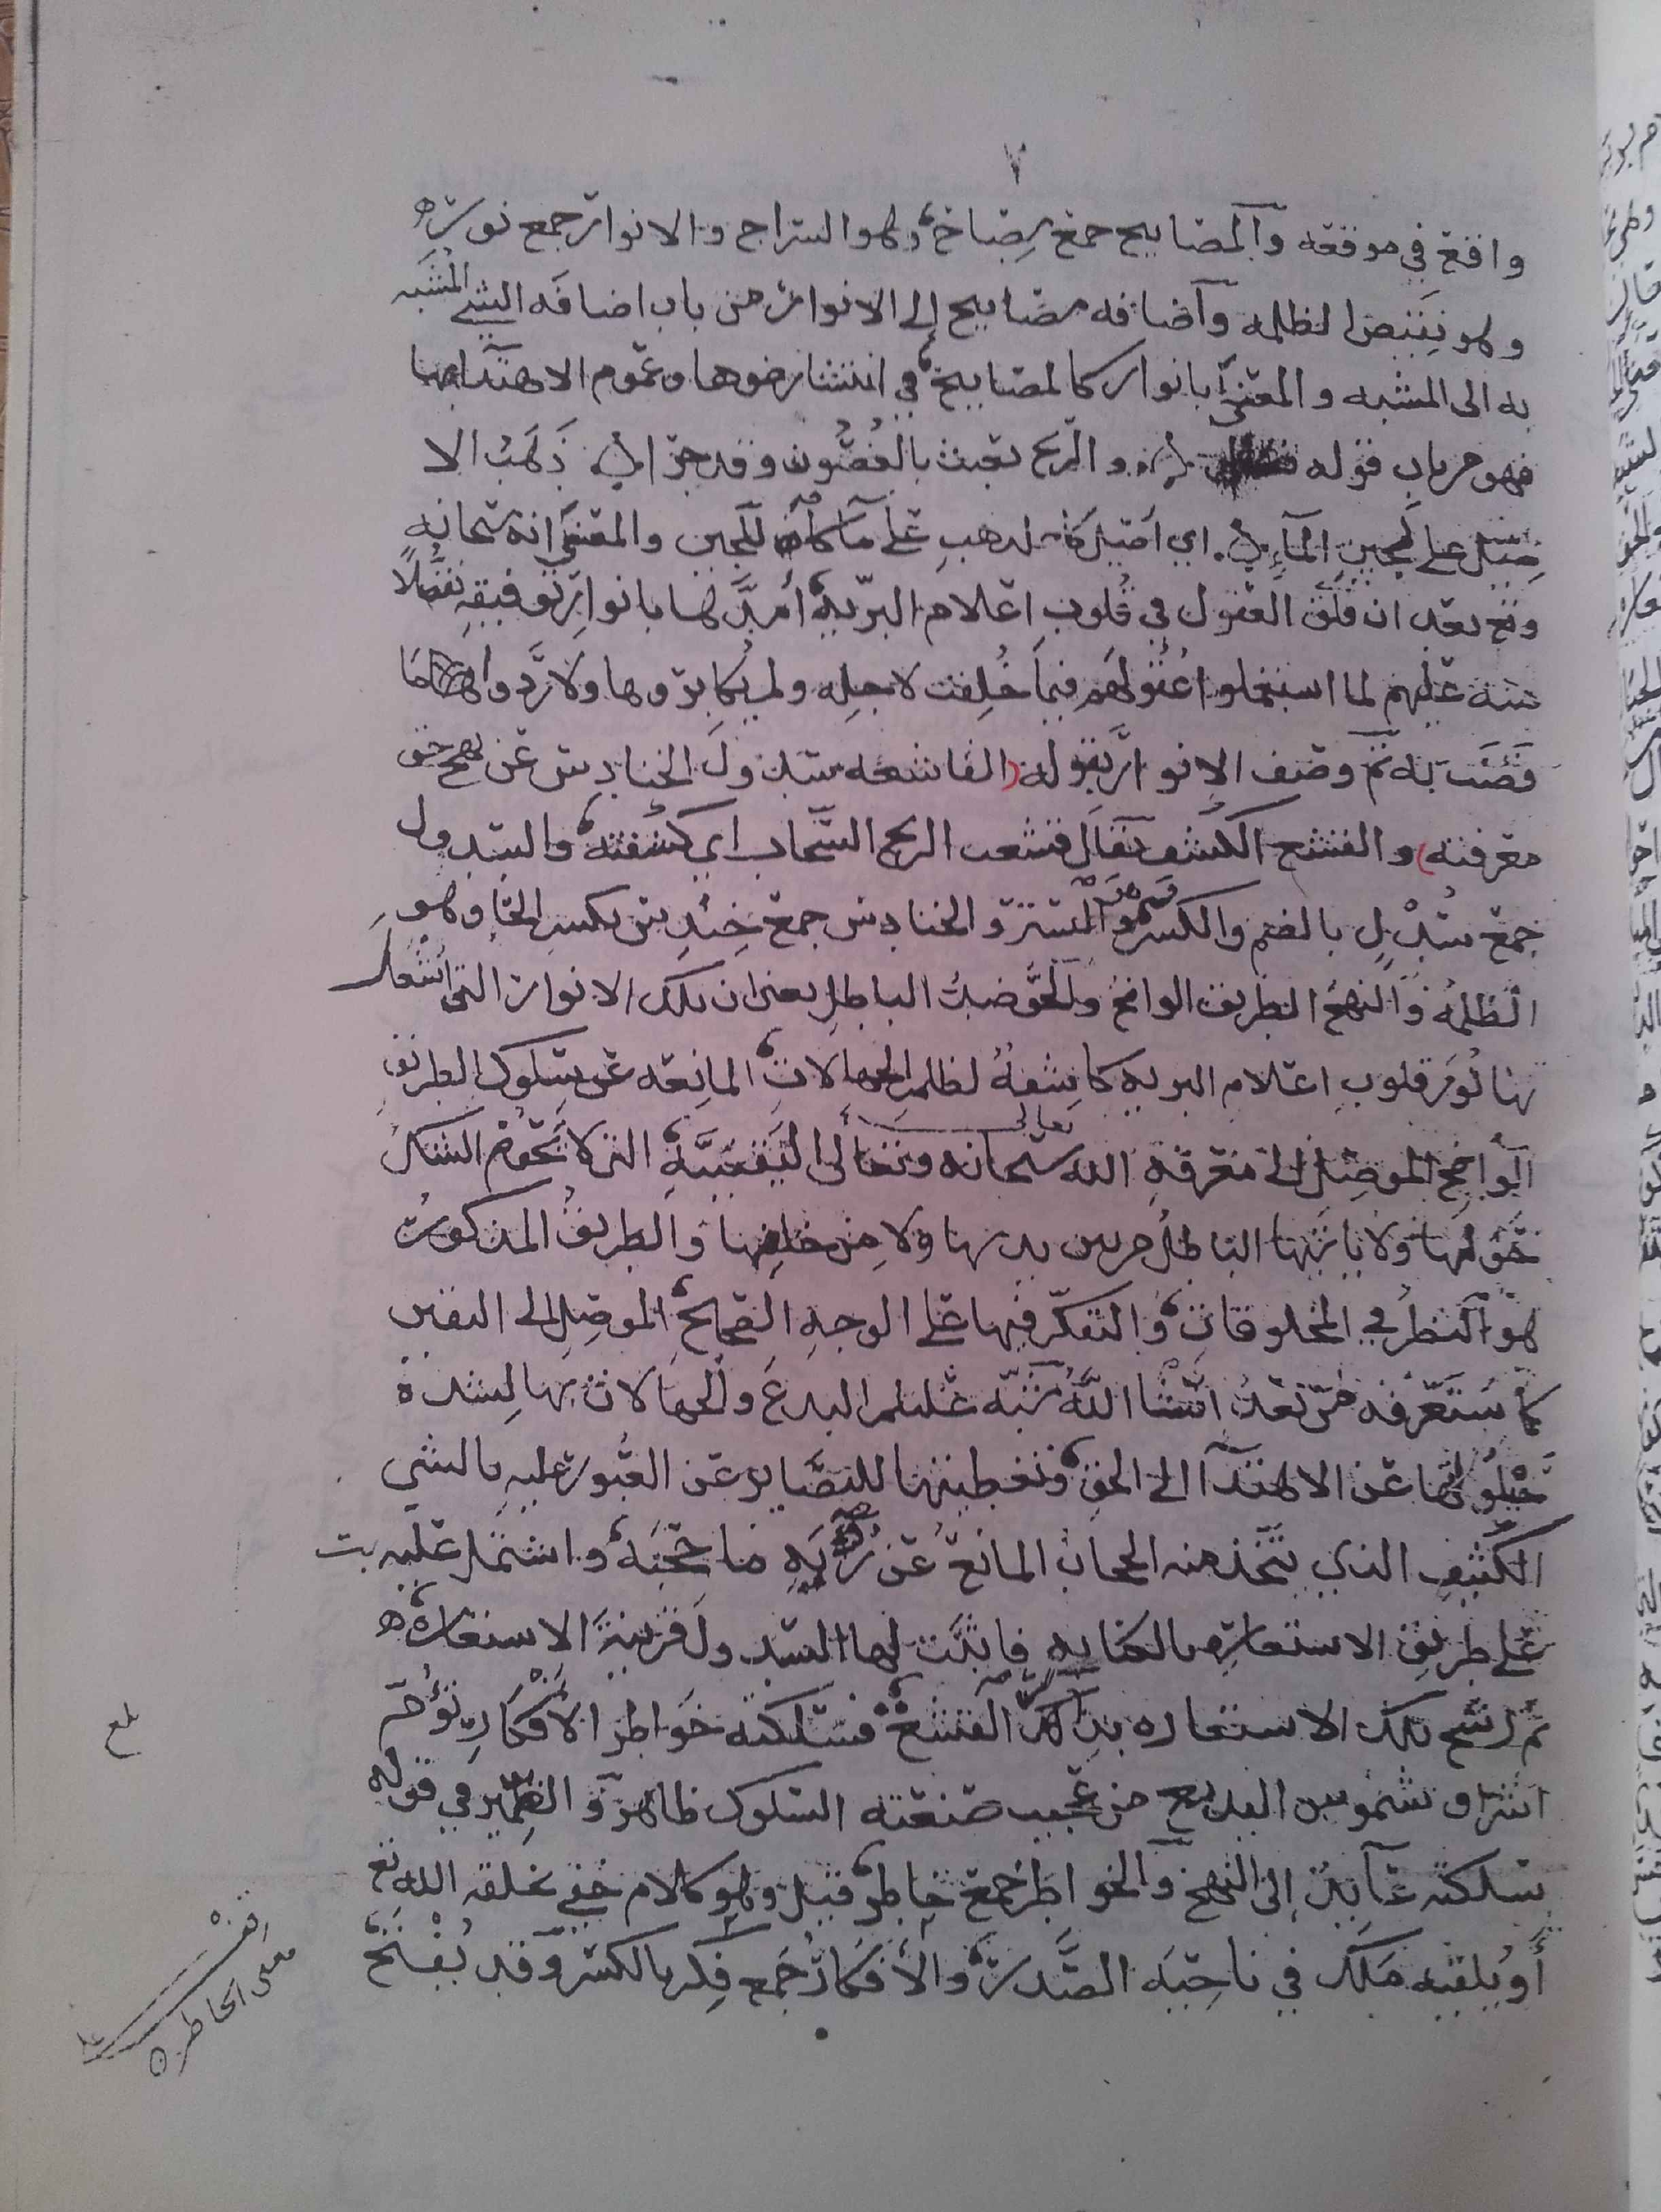 ٧
واقع في موقعه والمصابيح جمع مصباح وهو السراج والانوار جمع نور
وهو نقيض الظلمه واضافه مصابيح الى الانوار من باب اضافه الشي المشبه
به الى المشبه والمعنى بانوار كالمصابيح في انتشار ضوها وعموم الاهتدا بها
فهو من باب قوله والريح تعبث بالغصون وقد جرا ذهب الا
صيل على لجين الماء اي اصيل كالذهب على ماء كاللجين والمعنى انه سحانه
وتع بعد ان فلق العقول في قلوب اعلام البريه أمدها بانوار توفيقه تفضلًا
منه عليهم لما استعملوا عقولهم فيما خلقت لاجله ولم يكابروها ولا ردوا ما
قضت به ثم وصف الانوار بقوله (القاشعه سدول الحنادس عن نهج حق
معرفته) والقشع الكشف يقال قشعت الريح السحاب اي كشفته والسدول
جمع سُدْل بالضم والكسر وهو الستر والحنادس جمع حِندِس بكسر الحا وهو
الظلمه والنهج الطريق الواضح والحق ضد الباطل يعني ان تلك الانوار التي استنار
بها نور قلوب اعلام البريه كاشفة لظلم الجهالات المانعه عن سلوك الطريق
الواضح الموصل الى معرفة الله سحانه وتعالى اليقينية التي لا يحوم الشك
حولها ولا ياتيها الباطل من بين يديها ولا من خلفها والطريق المذكور
هو النظر في المخلوقات والتفكر فيها على الوجه الصحيح الموصل الى اليقين
كما ستعرفه من بعد انشا الله شبه ظلم البدع والجهالات بها لشدة
حيلولتها عن الاهتدا الى الحق وتغطيتها للبصاير عن العبور عليه بالشي
الكثيف الذي يتخذ منه الحجاب المانع عن رؤيه ما حجبه واشتمل عليه
على طريق الاستعاره بالكنايه فاثبت لها السدول قرينة الاستعاره
ثم رشح تلك الاستعاره بذكر القشع فسلكته خواطر الافكار تؤم
اشراق شموس البديع من عجيب صنعته السلوك ظاهر والضمير في قوله
سلكته عايد إلى النهج والخواطر جمع خاطر قيل وهو كلام خفي يخلقه الله تع
أو يلقيه ملك في ناحيه الصدر والافكار جمع فكر بالكسر وقد يُفْتَح
بلغ
معنى الخاطر